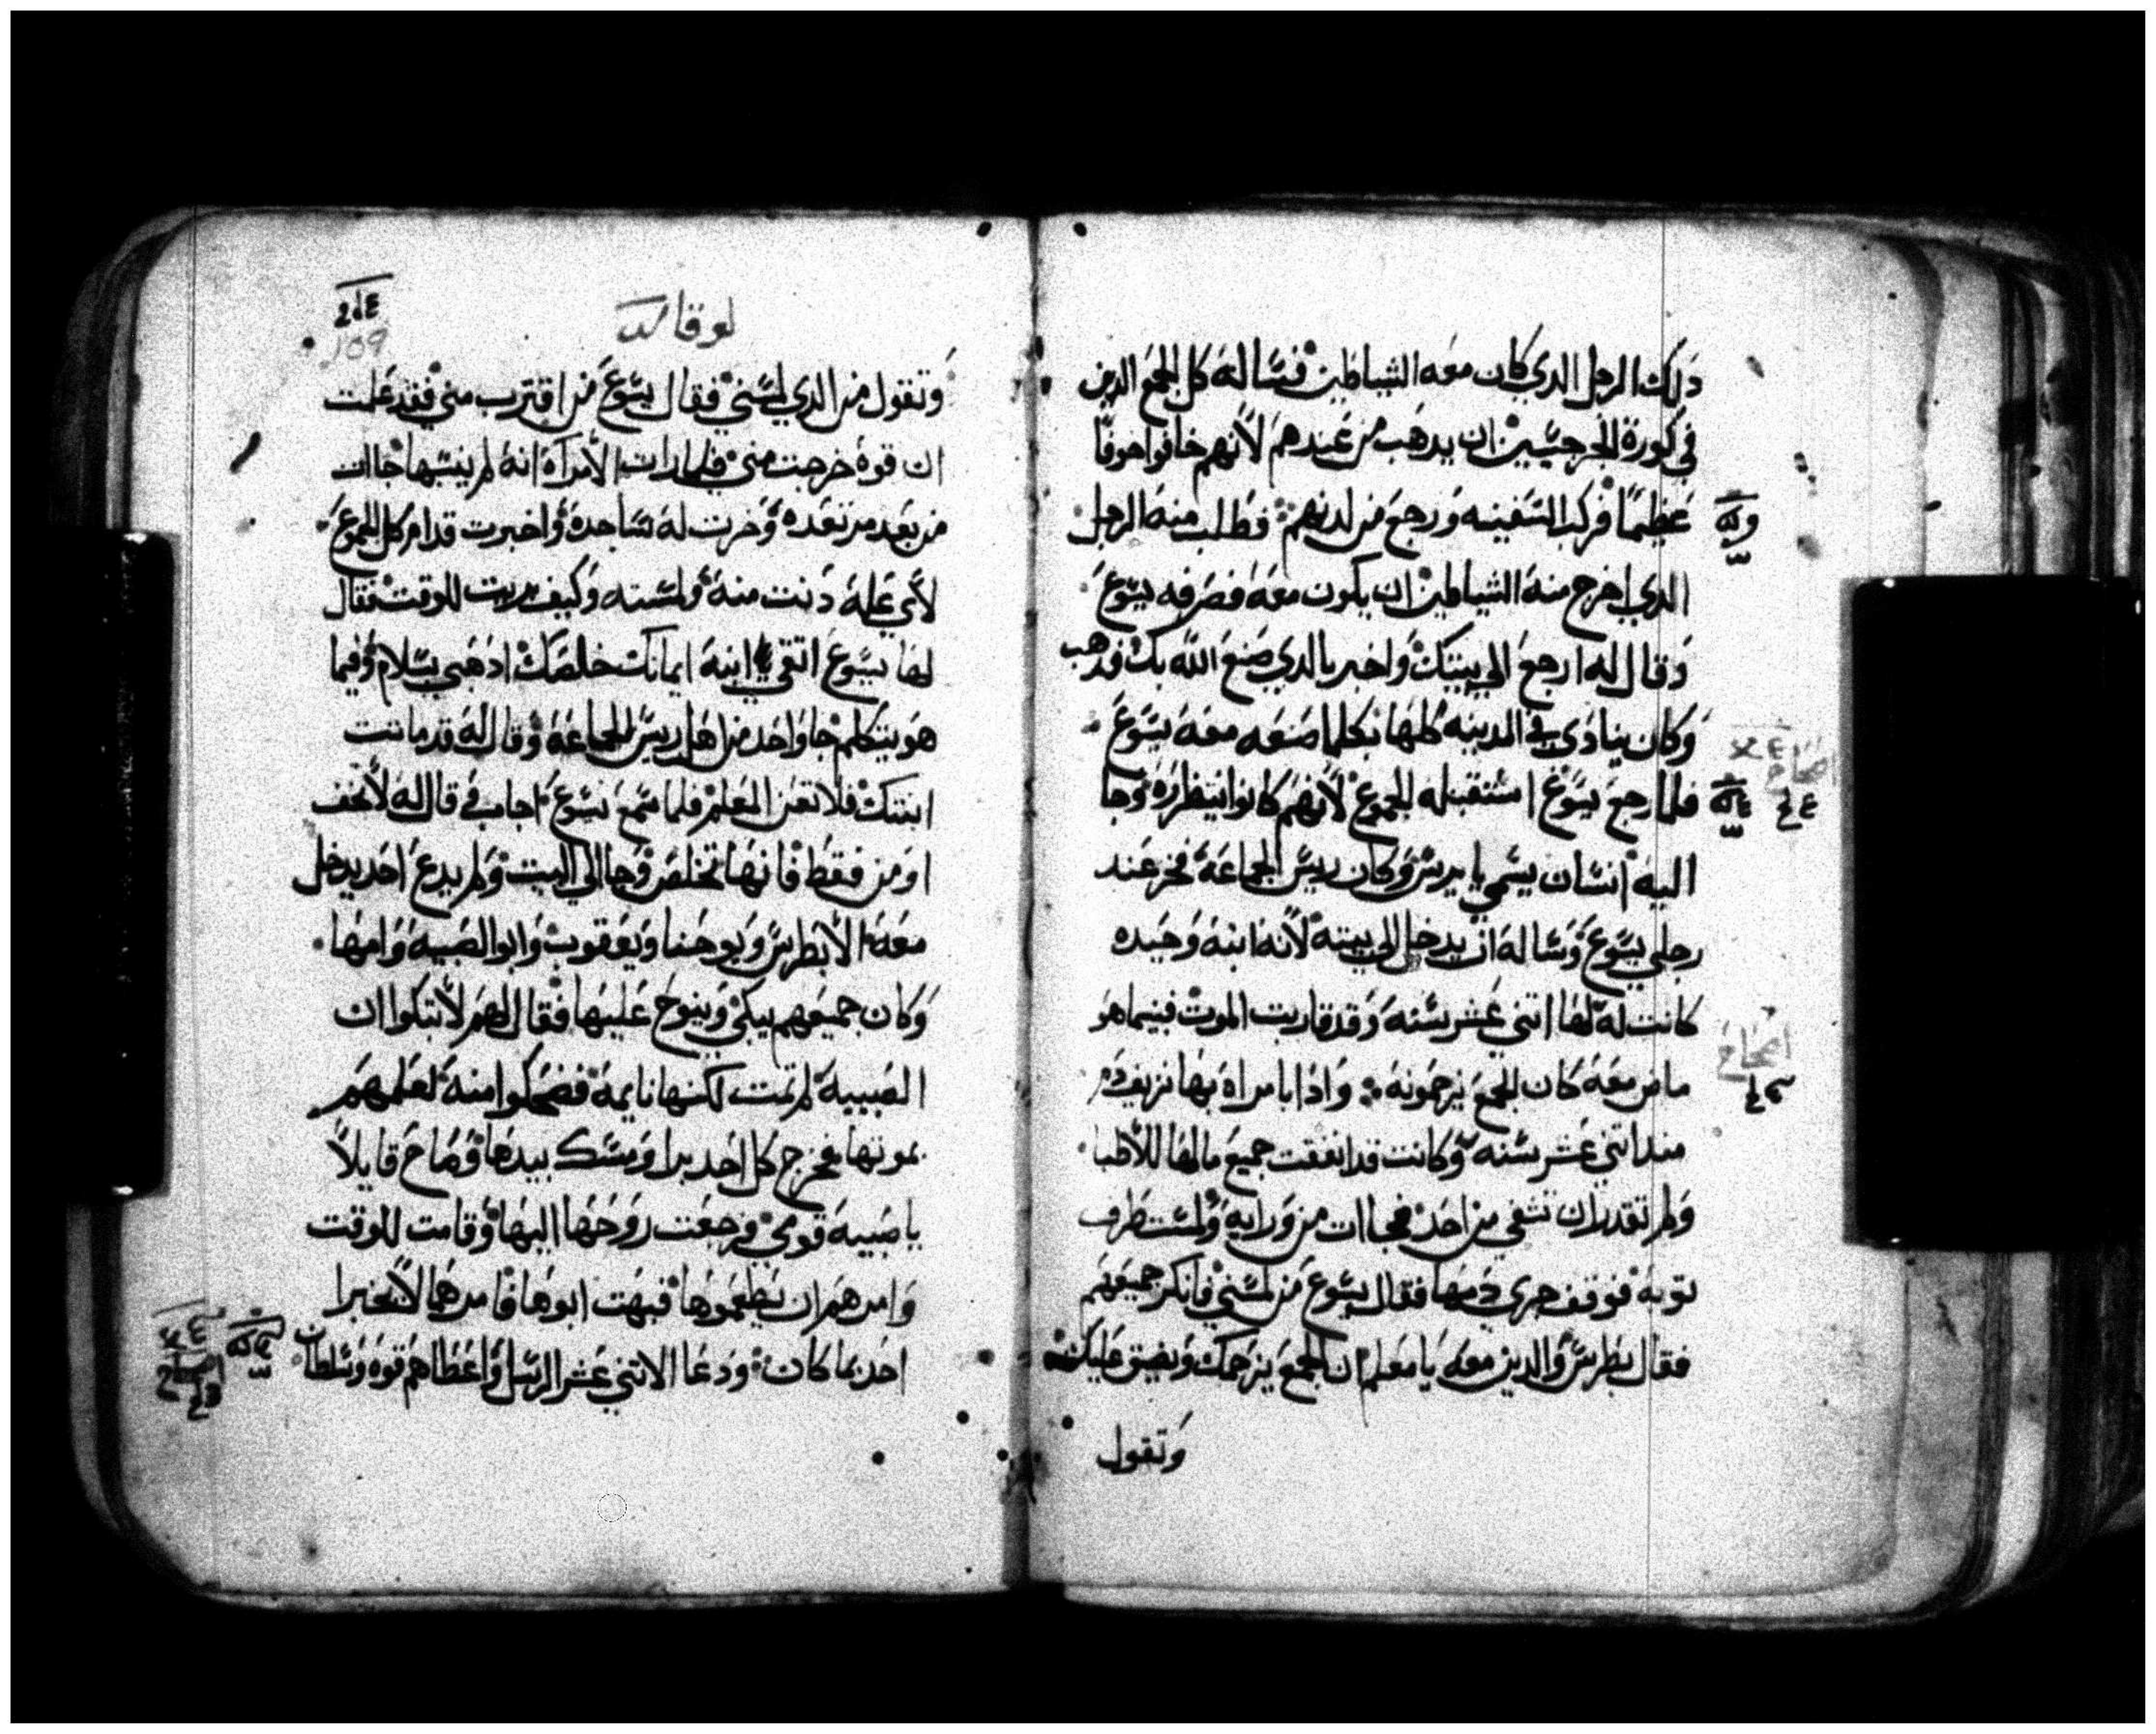 دلك الرجل الدي كان معه الشياطين فساله كل الجمع الدين
في كورة الجرجسيين ان يدهب من عندهم لانهم خافوا خوفا
عظيما فركب السفينه ورجع من لدنهم فطلب منه الرجل
الدي اخرج منه الشياطين ان يكون معه فصرفه يسوع
وقال له ارجع الي بيتك واخبر بالدي صنع الله بك فدهب
وكان ينادي في المدينه كلها بكلما صنعه معه يسوع
فلما رجع يسوع استقبله الجموع لانهم كانوا ينتظروه وجا
اليه انسان يسمي يايرس وكان ريس الجماعة فخر عند
رجلي يسوع وساله ان يدخل الي بيته لانه ابنه وحيده
كانت له لها اتني عشر سنه وقد قاربت الموت فبينما هو
ماض معه كان الجمع يزحمونه وادا بامراه بها نزيف دم
مند اتني عشر سنه وكانت قد انفقت جميع مالها للاطبا
ولم تقدر ان تشفي من احد فجاات من ورايه ولمست طرف
توبه فوقف جري دمها فقال يسوع من لمسني فانكر جميعهم
فقال بطرس والدين معه يا معلم ان الجمع يزحمك ويضيق عليك
وتقول
لوقا
109
وتقول من الدي لمسني فقال يسوع من اقترب مني فقد علمت
ان قوة خرجت مني فلما رات الامراة انه لم ينسها جاات
من بعد مرتعده وخرت له ساجدة واخبرت قدام كل الجموع
لاي علة دنت منه ولمسته وكيف بريت للوقت فقال
لها يسوع اتقي يا ابنة ايمانك خلصك ادهبي بسلام وفيما
هو يتكلم جا واحد من اهل ريس الجماعة وقال له قد ماتت
ابنتك فلا تعن المعلم فلما سمع يسوع اجاب في قال له لا تخف
اومن فقط فانها تخلص وجا الي البيت ولم يدع احد يدخل
معه الا بطرس ويوحنا ويعقوب وابو الصبية وامها
وكان جميعهم يبكي وينوح عليها فقال لهم لا تبكوا ان
الصبيبة لم تمت لكنها نايمة فضحكوا منه لعلمهم
بموتها فخرج كل احد برا ومسك بيدها وصاح قايلا
يا صبيه قومي فرجعت روحها اليها وقامت للوقت
وامرهم ان يطعموها فبهت ابوها فامرهما لا يخبرا
احد بما كان ودعا الاتني عشر الرسل واعطاهم قوه وسلطان